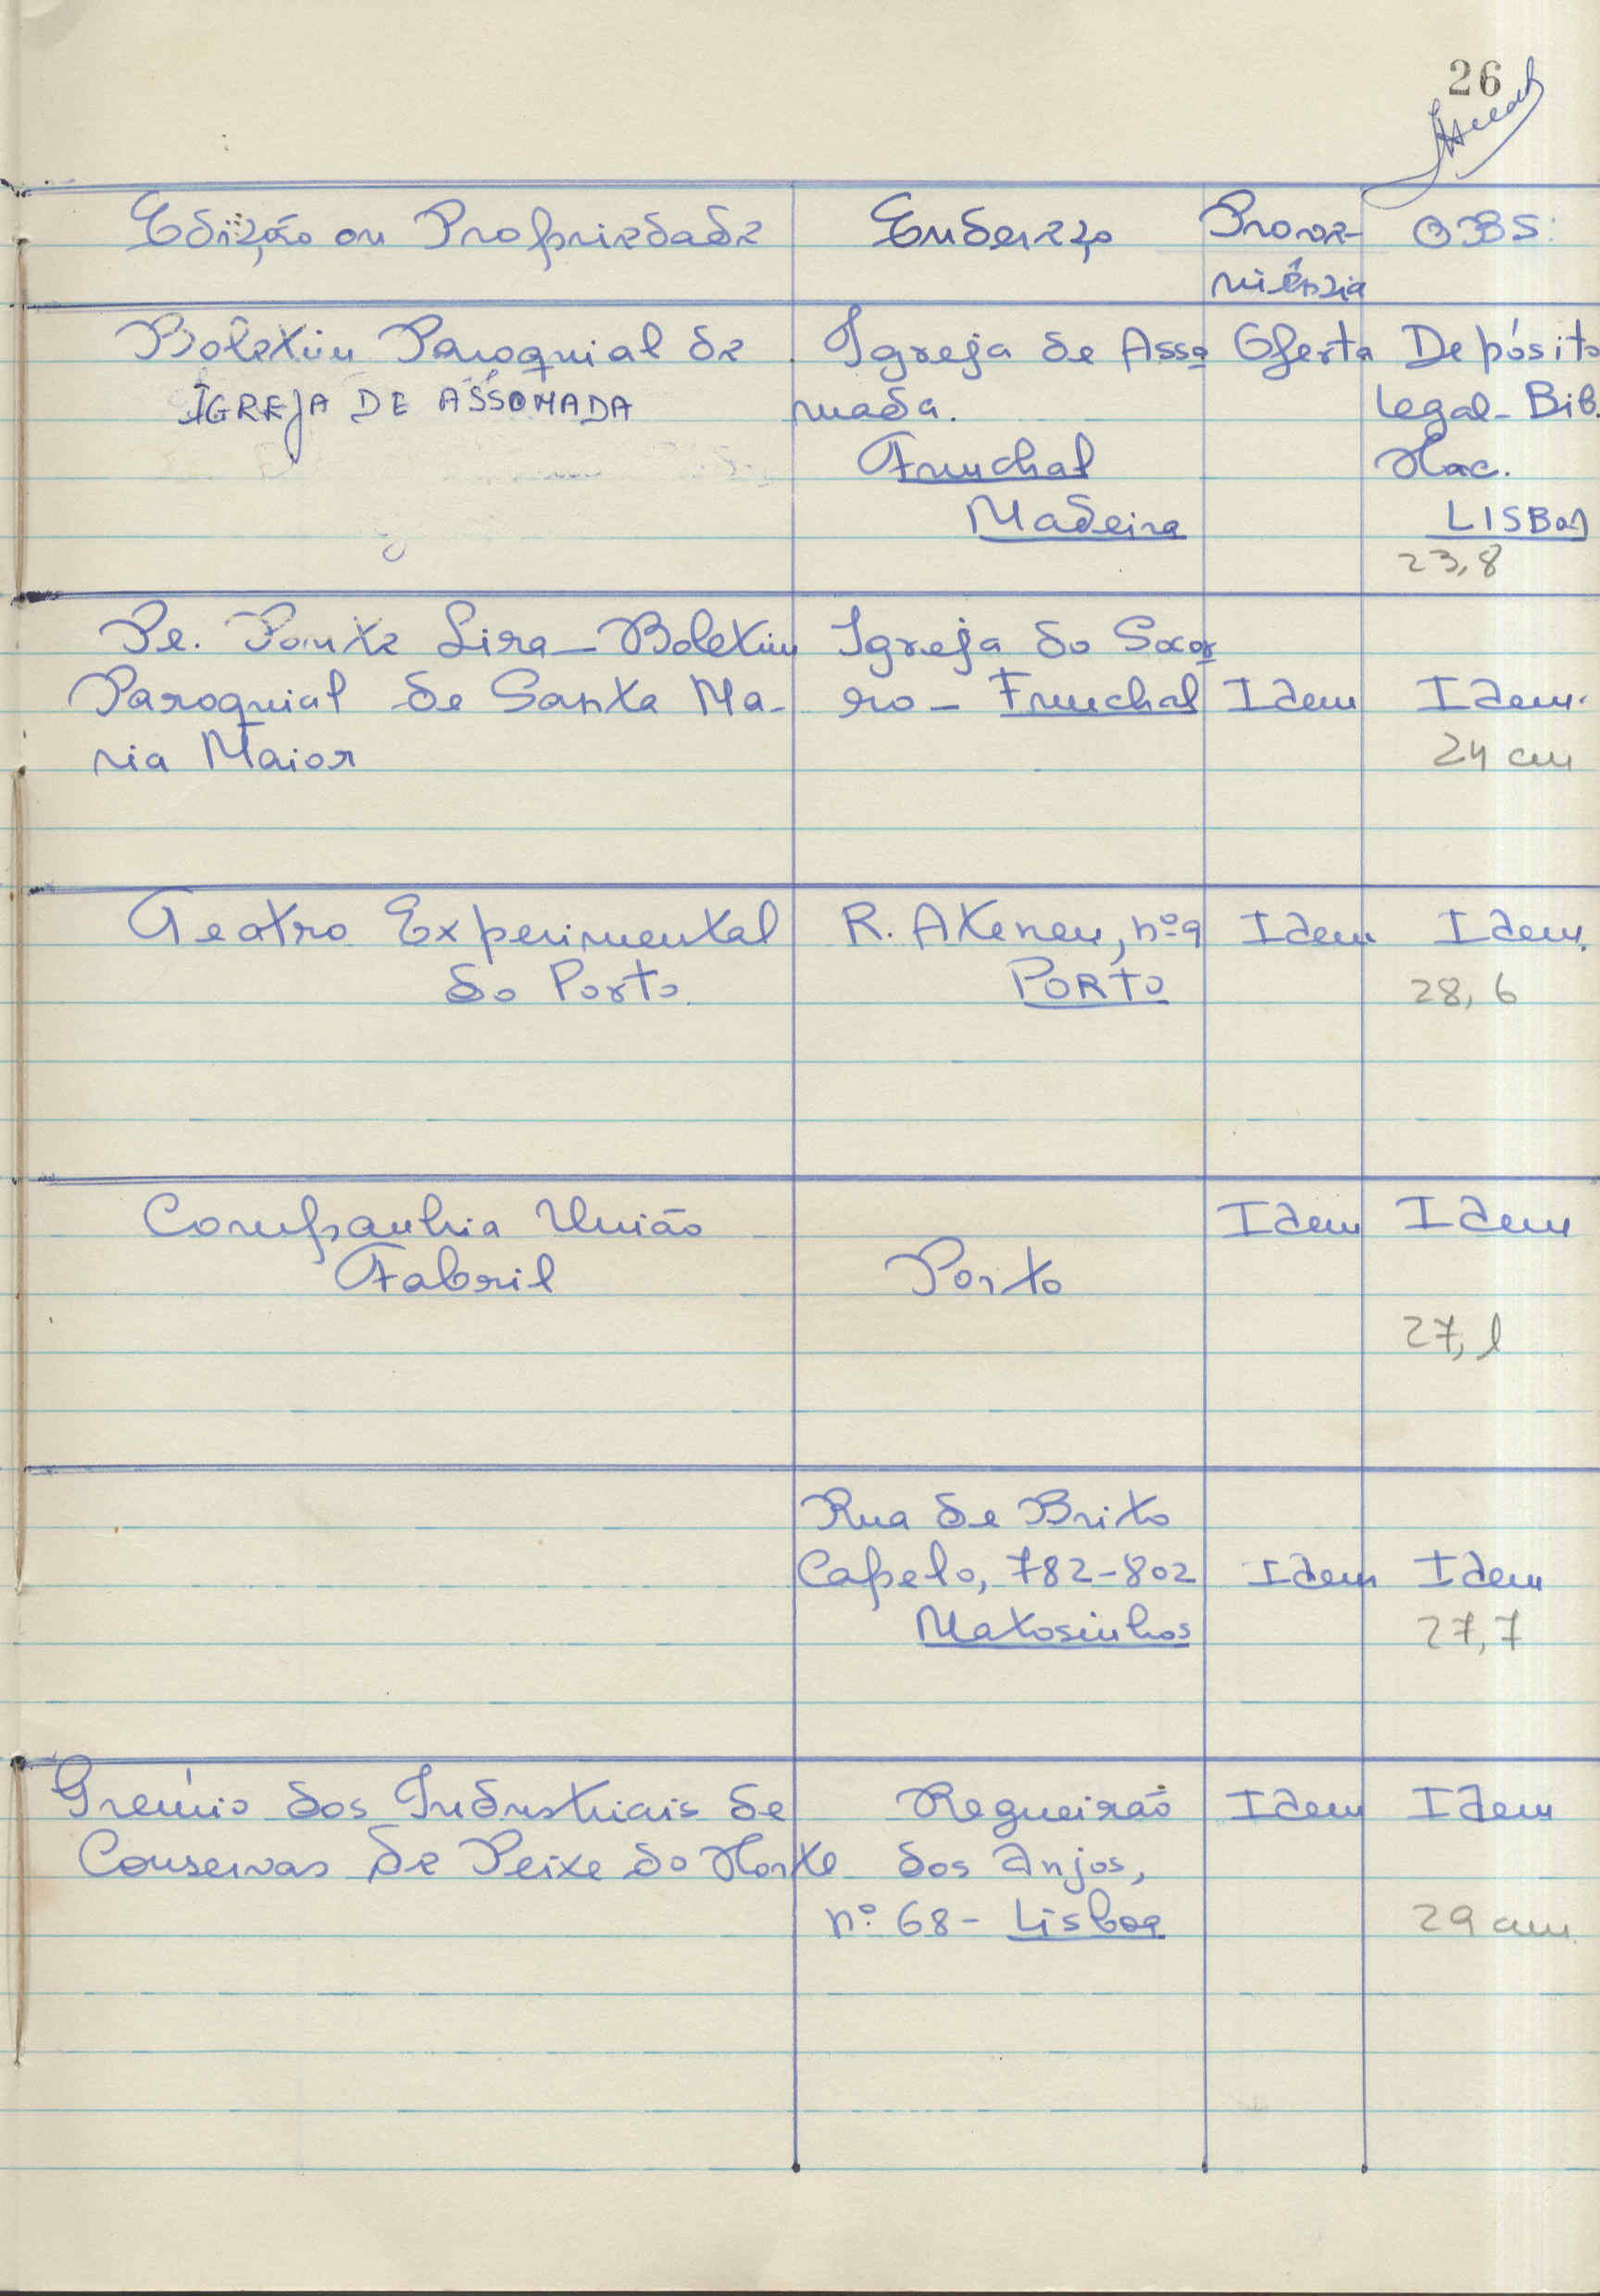 26
Edição ou Propriedade Endereço Prove- OBS:
niência
Boletim Paroquial de Igreja de Asso Oferta Depósito
IGREJA DE ASSOMADA mada. Legal - Bib.
Funchal Nac.
Madeira LISBOA
23,8
Pe. Ponte Lira - Boletim Igreja do Socor
Paroquial de Santa Ma- ro - Funchal Idem Idem.
ria Maior 24 cm
Teatro Experimental R. Ateneu, nº 9 Idem Idem.
do Porto. PORTO 28,6
Companhia União Idem Idem
Fabril Porto
27,1
Rua de Brito
Capelo, 782-802 Idem Idem
Matosinhos 27,7
Gremio dos Industriais de Regueirão Idem Idem
Conservas de Peixe do Norte dos Anjos,
nº 68 - Lisboa 29 cm